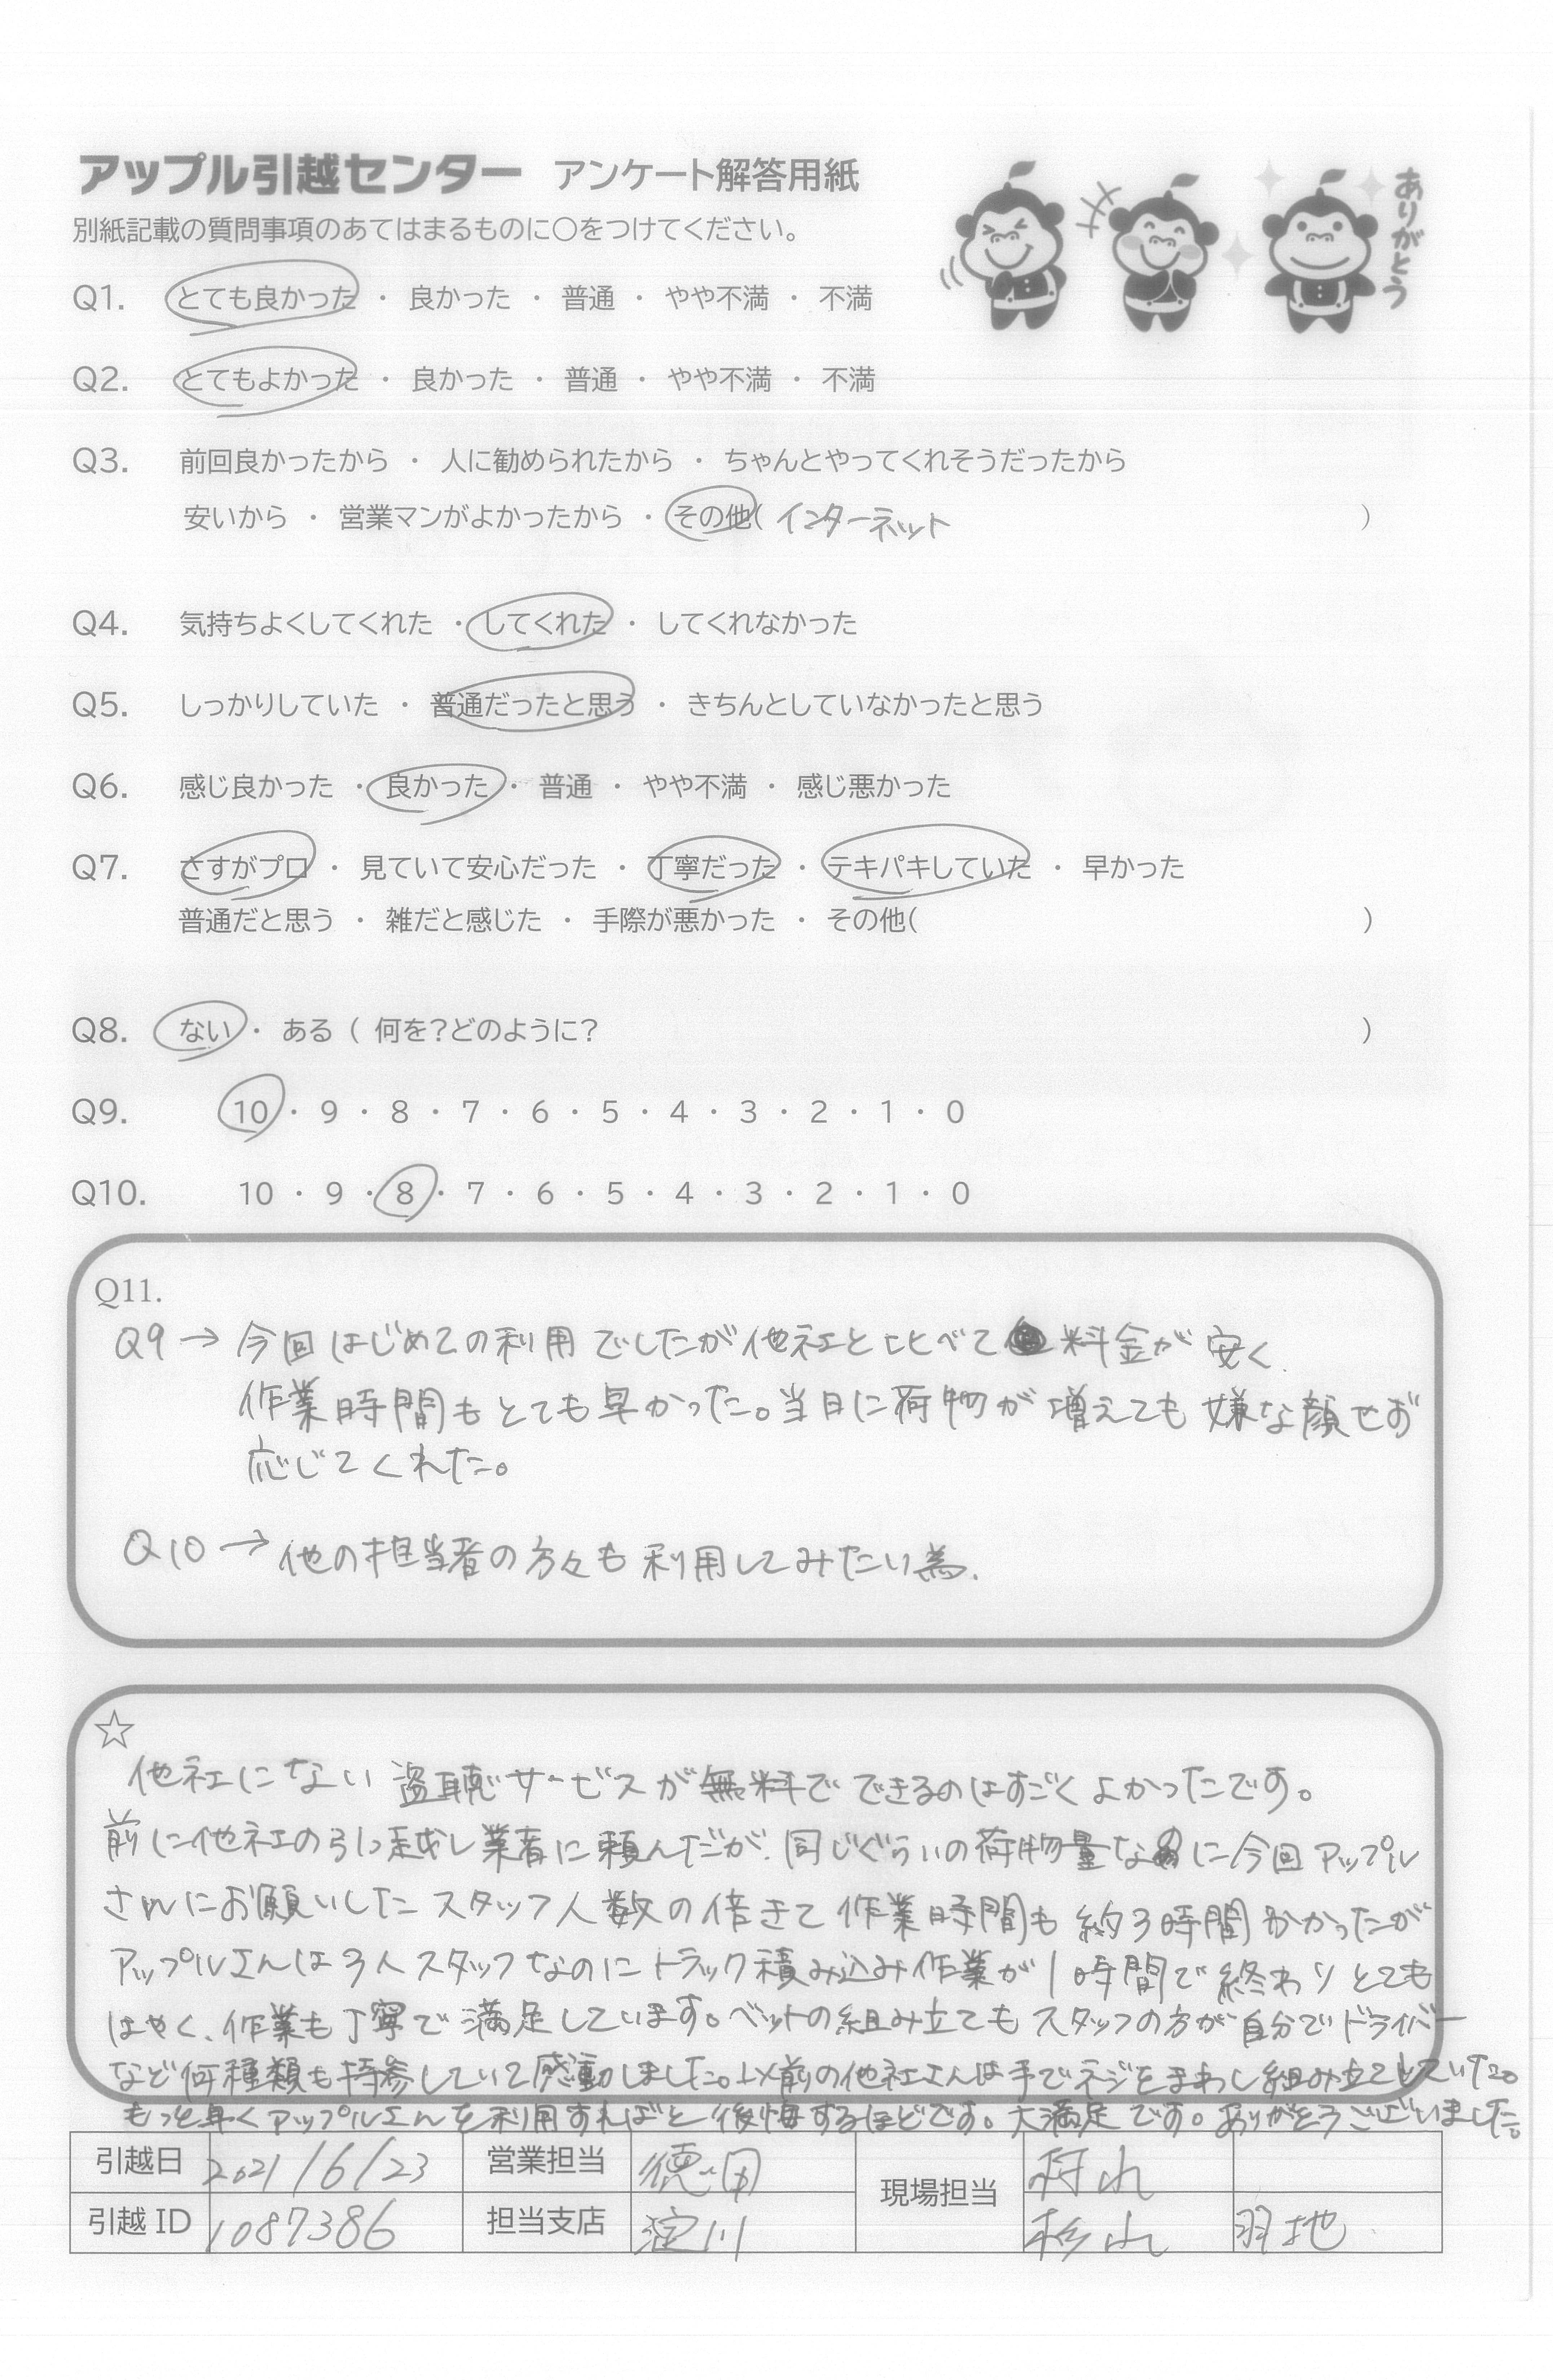 アップル引越センター アンケート解答用紙
ありがとう
別紙記載の質問事項のあてはまるものに○をつけてください。
Q1. とても良かった ・ 良かった ・ 普通 ・ やや不満 ・ 不満
Q2. とてもよかった ・ 良かった ・ 普通 ・ やや不満 ・ 不満
Q3. 前回良かったから ・ 人に勧められたから ・ ちゃんとやってくれそうだったから
安いから ・ 営業マンがよかったから ・ その他( インターネット )
Q4. 気持ちよくしてくれた ・ してくれた ・ してくれなかった
Q5. しっかりしていた ・ 普通だったと思う ・ きちんとしていなかったと思う
Q6. 感じ良かった ・ 良かった ・ 普通 ・ やや不満 ・ 感じ悪かった
Q7. さすがプロ ・ 見ていて安心だった ・ 丁寧だった ・ テキパキしていた ・ 早かった
普通だと思う ・ 雑だと感じた ・ 手際が悪かった ・ その他( )
Q8. ない ・ ある ( 何を?どのように? )
Q9. 10 ・ 9 ・ 8 ・ 7 ・ 6 ・ 5 ・ 4 ・ 3 ・ 2 ・ 1 ・ 0
Q10. 10 ・ 9 ・ 8 ・ 7 ・ 6 ・ 5 ・ 4 ・ 3 ・ 2 ・ 1 ・ 0
Q11.
Q9 → 今回はじめての利用でしたが他社と比べて料金が安く、
作業時間もとても早かった。当日に荷物が増えても嫌な顔せず
応じてくれた。
Q10 → 他の担当者の方々も利用してみたい為、
☆
他社にない盗聴サービスが無料でできるのはすごくよかったです。
前に他社の引っ越し業者に頼んだが、同じぐらいの荷物量なのに今回アップル
さんにお願いしたスタッフ人数の倍きて作業時間も約3時間かかったが
アップルさんは3人スタッフなのにトラック積み込み作業が1時間で終わりとても
はやく、作業も丁寧で満足しています。ベットの組み立てもスタッフの方が自分でドライバー
など何種類も持参していて感動しました。以前の他社さんは手でネジをまわし組み立てしていたため
もっと早くアップルさんを利用すればと後悔するほどです。大満足です。ありがとうございました。
引越日 2021/6/23 営業担当 徳田 現場担当 村山
引越 ID 1087386 担当支店 淀川 杉山 羽地